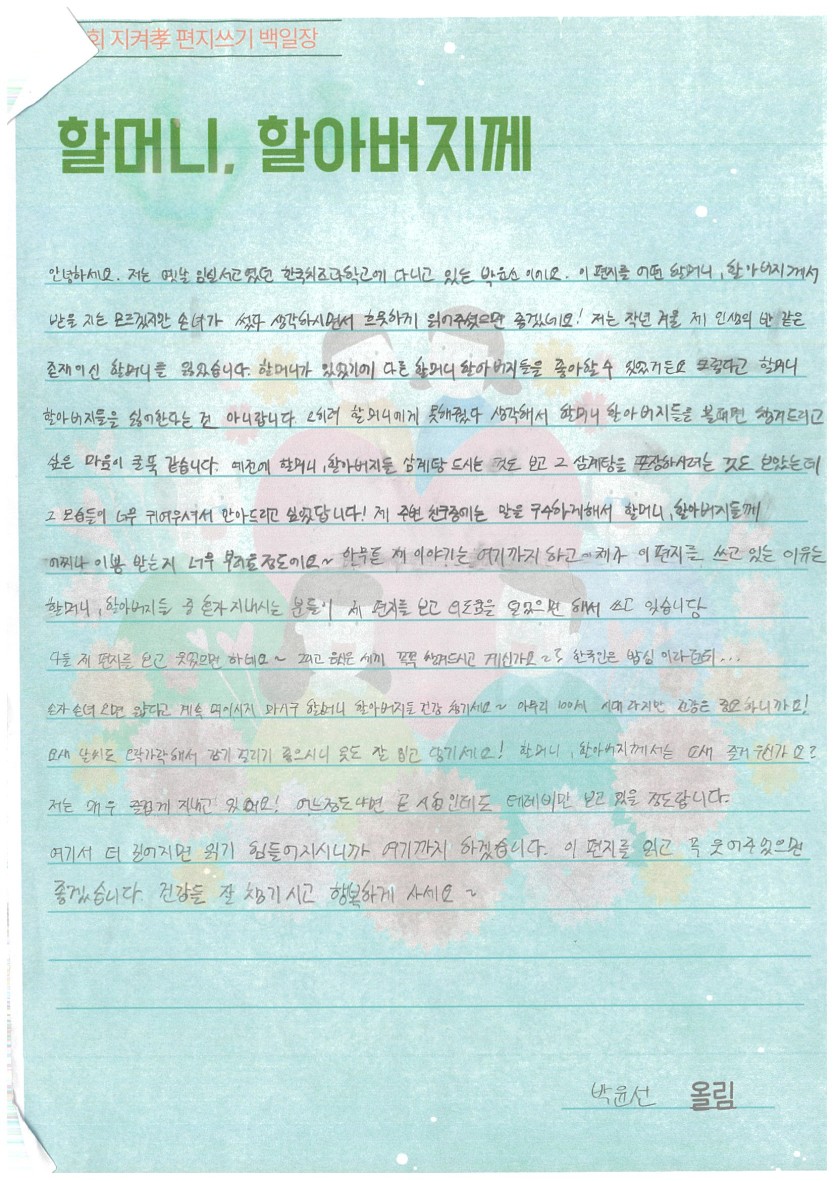 회 지켜孝 편지쓰기 백일장
할머니, 할아버지께
안녕하세요. 저는 옛날 임실서고였던 한국치즈과학고에 다니고 있는 박윤선이에요. 이 편지를 어떤 할머니, 할아버지께서
받을지는 모르겠지만 손녀가 썼다 생각하시면서 흐뭇하게 읽어주셨으면 좋겠네요! 저는 작년 겨울 제 인생의 반 같은
존재이신 할머니를 잃었습니다. 할머니가 있었기에 다른 할머니 할아버지들을 좋아할 수 있었거든요 그렇다고 할머니
할아버지들을 싫어한다는 건 아니랍니다. 오히려 할머니에게 못해줬다 생각해서 할머니 할아버지들을 볼때면 챙겨드리고
싶은 마음이 굴뚝 같습니다. 예전에 할머니, 할아버지들 삼계탕 드시는 것도 보고 그 삼계탕을 포장하시려는 것도 보았는데
그 모습들이 너무 귀여우셔서 안아드리고 싶었답니다! 제 주변 친구중에는 말을 구수하게해서 할머니, 할아버지들께
어찌나 이쁨 받는지 너무 부러울정도에요~ 안부를 제 이야기는 여기까지 하고 제가 이편지를 쓰고 있는 이유는
할머니, 할아버지들 중 혼자 지내시는 분들이 제 편지를 보고 외로움을 덜었으면 해서 쓰고 있습니다
다들 제 편지를 보고 웃었으면 하네요~ 그리고 밥은 세끼 꼭꼭 챙겨드시고 계신가요~? 한국인은 밥심 이라던데...
손자 손녀 오면 왔다고 계속 먹이시지 마시구 할머니 할아버지들 건강 챙기세요~ 아무리 100세 시대라지만 건강은 중요하니까요!
요새 날씨도 오락가락해서 감기 걸리기 좋으시니 옷도 잘 입고 댕기세요! 할머니, 할아버지께서는 요새 즐거우신가요?
저는 매우 즐겁게 지내고 있어요! 어느정도냐면 곧 시험인데도 테레비만 보고 있을 정도랍니다.
여기서 더 길어지면 읽기 힘들어지시니까 여기까지 하겠습니다. 이 편지를 읽고 꼭 웃어주었으면
좋겠습니다. 건강들 잘 챙기시고 행복하게 사세요~
박윤선 올림